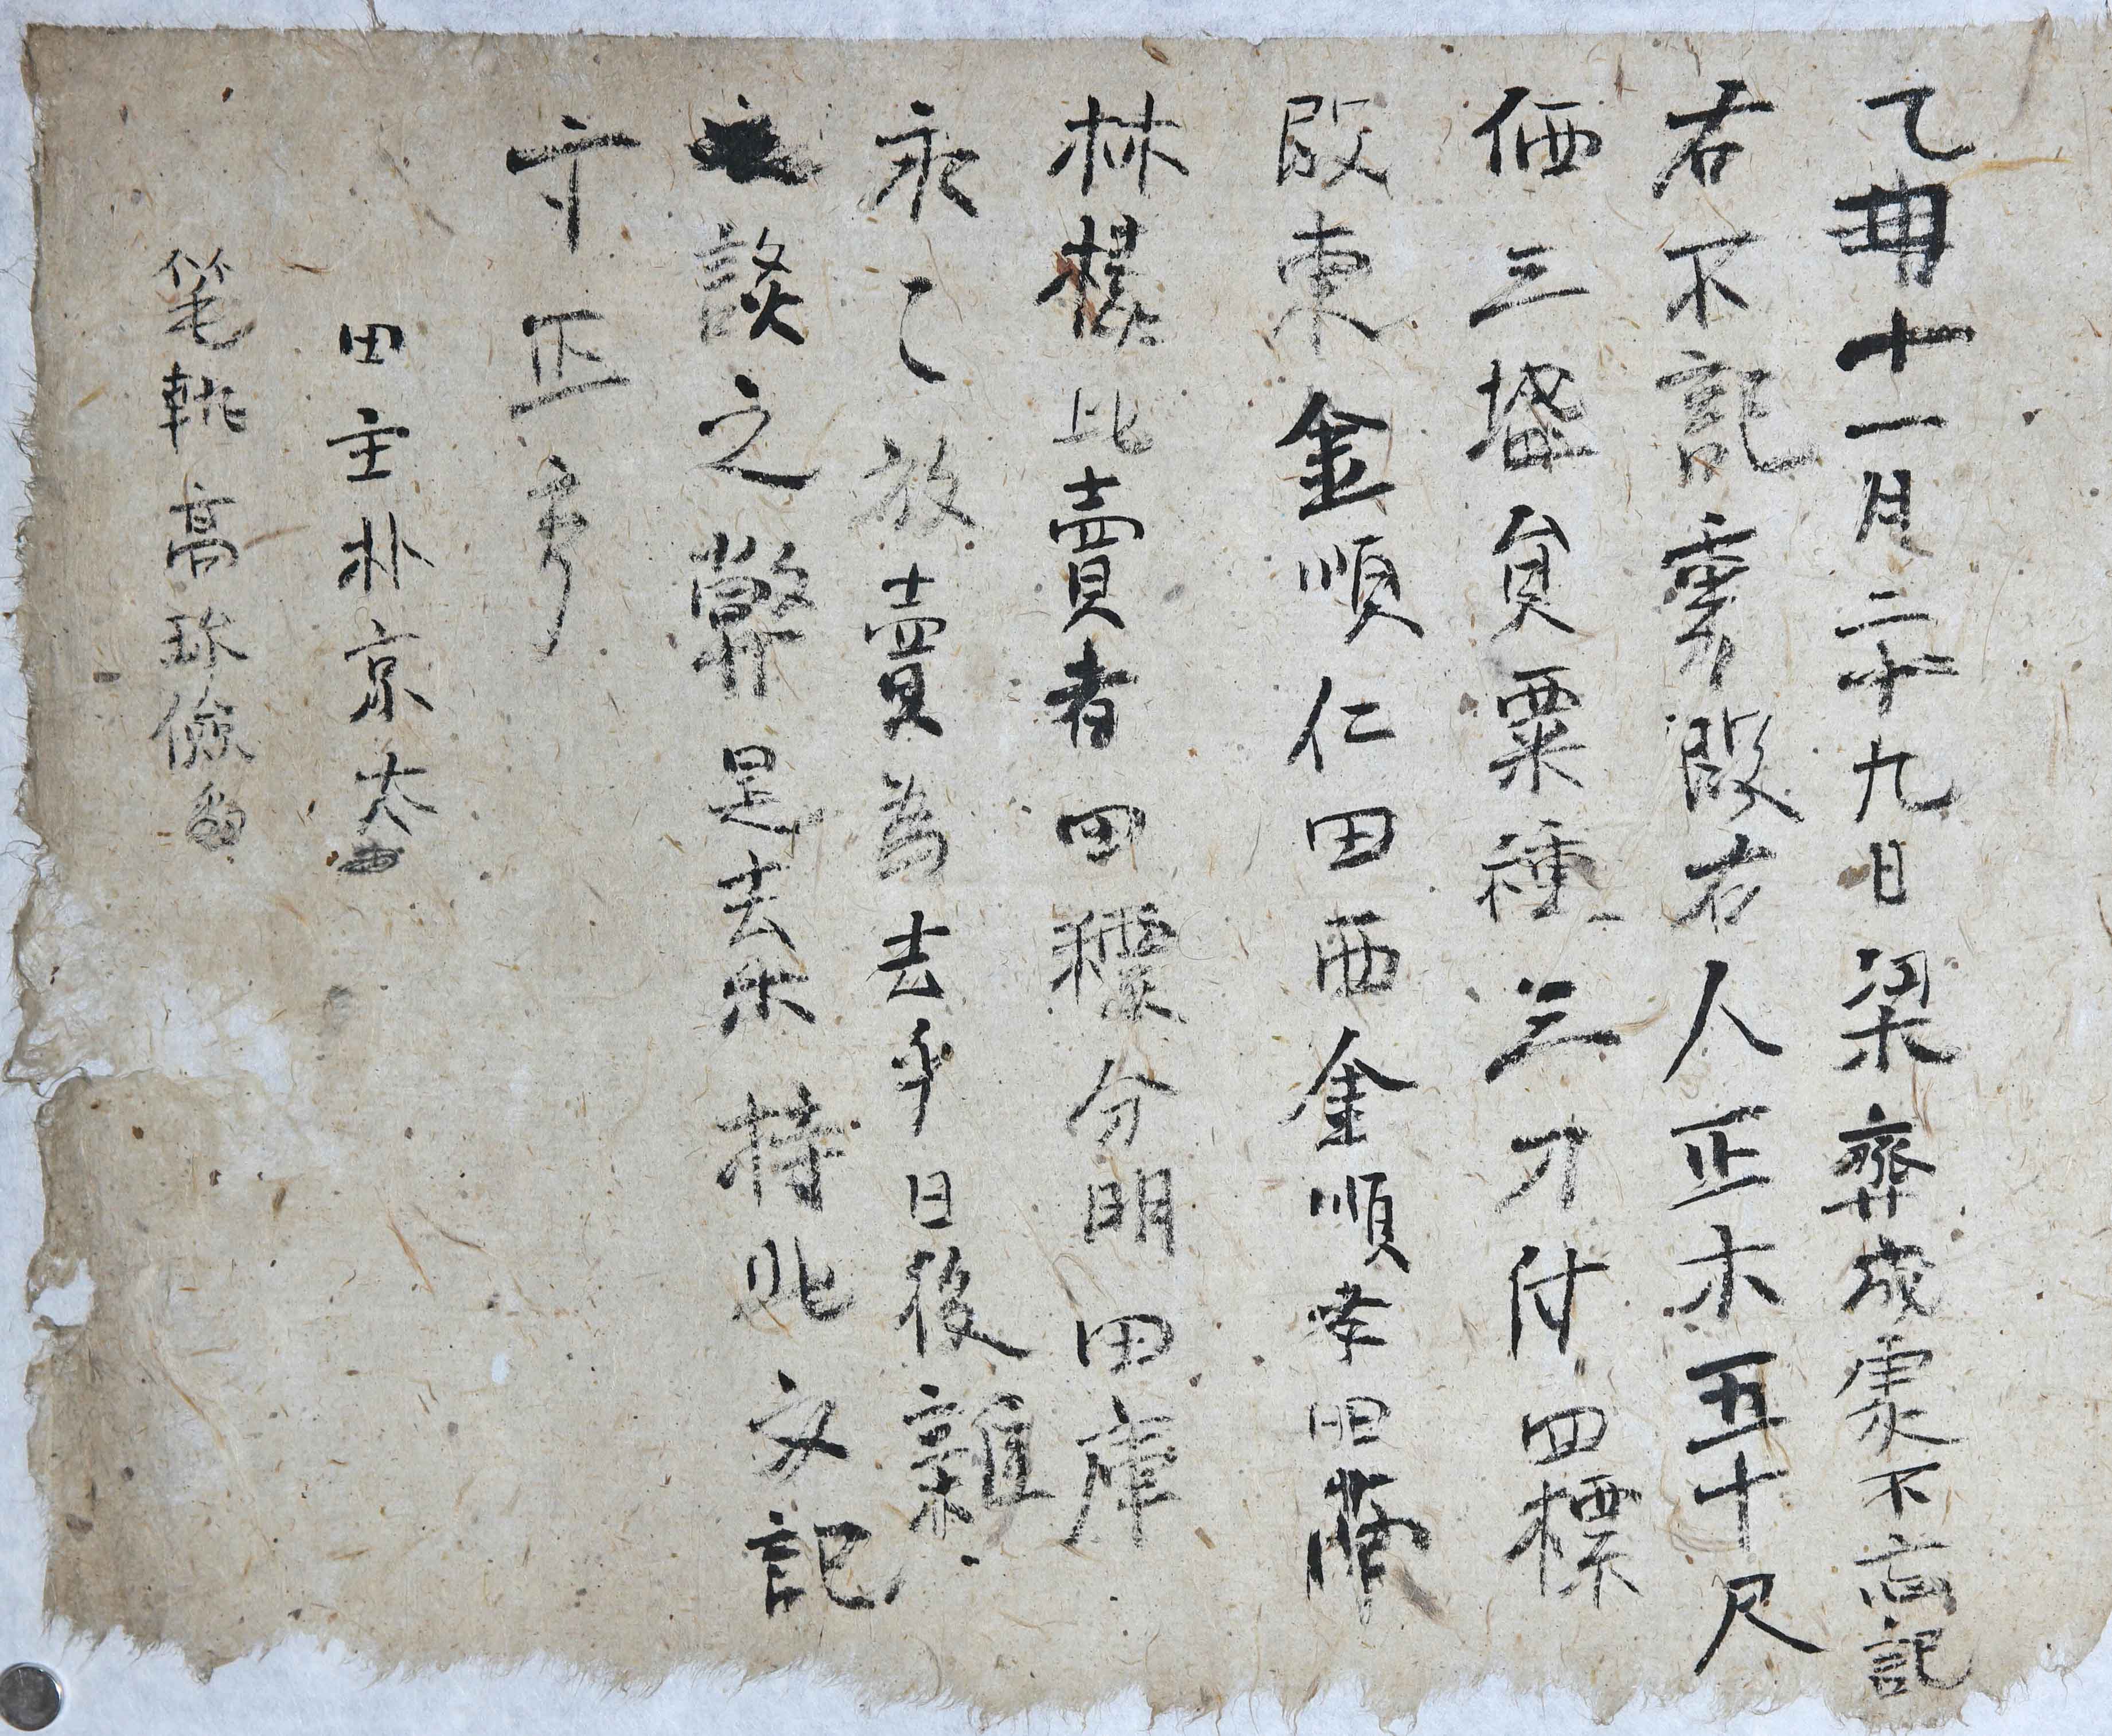 乙酉十一月二十九日梁齊成處不忘記
右不記事段右人正木五十尺
価三㙻負粟種三刀付四標
段東金順仁田西金順孝田
林樣比賣者田標分明田庫
永〻放賣為去乎日後雜
談之弊是去乎持此文記
寸正事
田主朴京太
筆執高珎儉